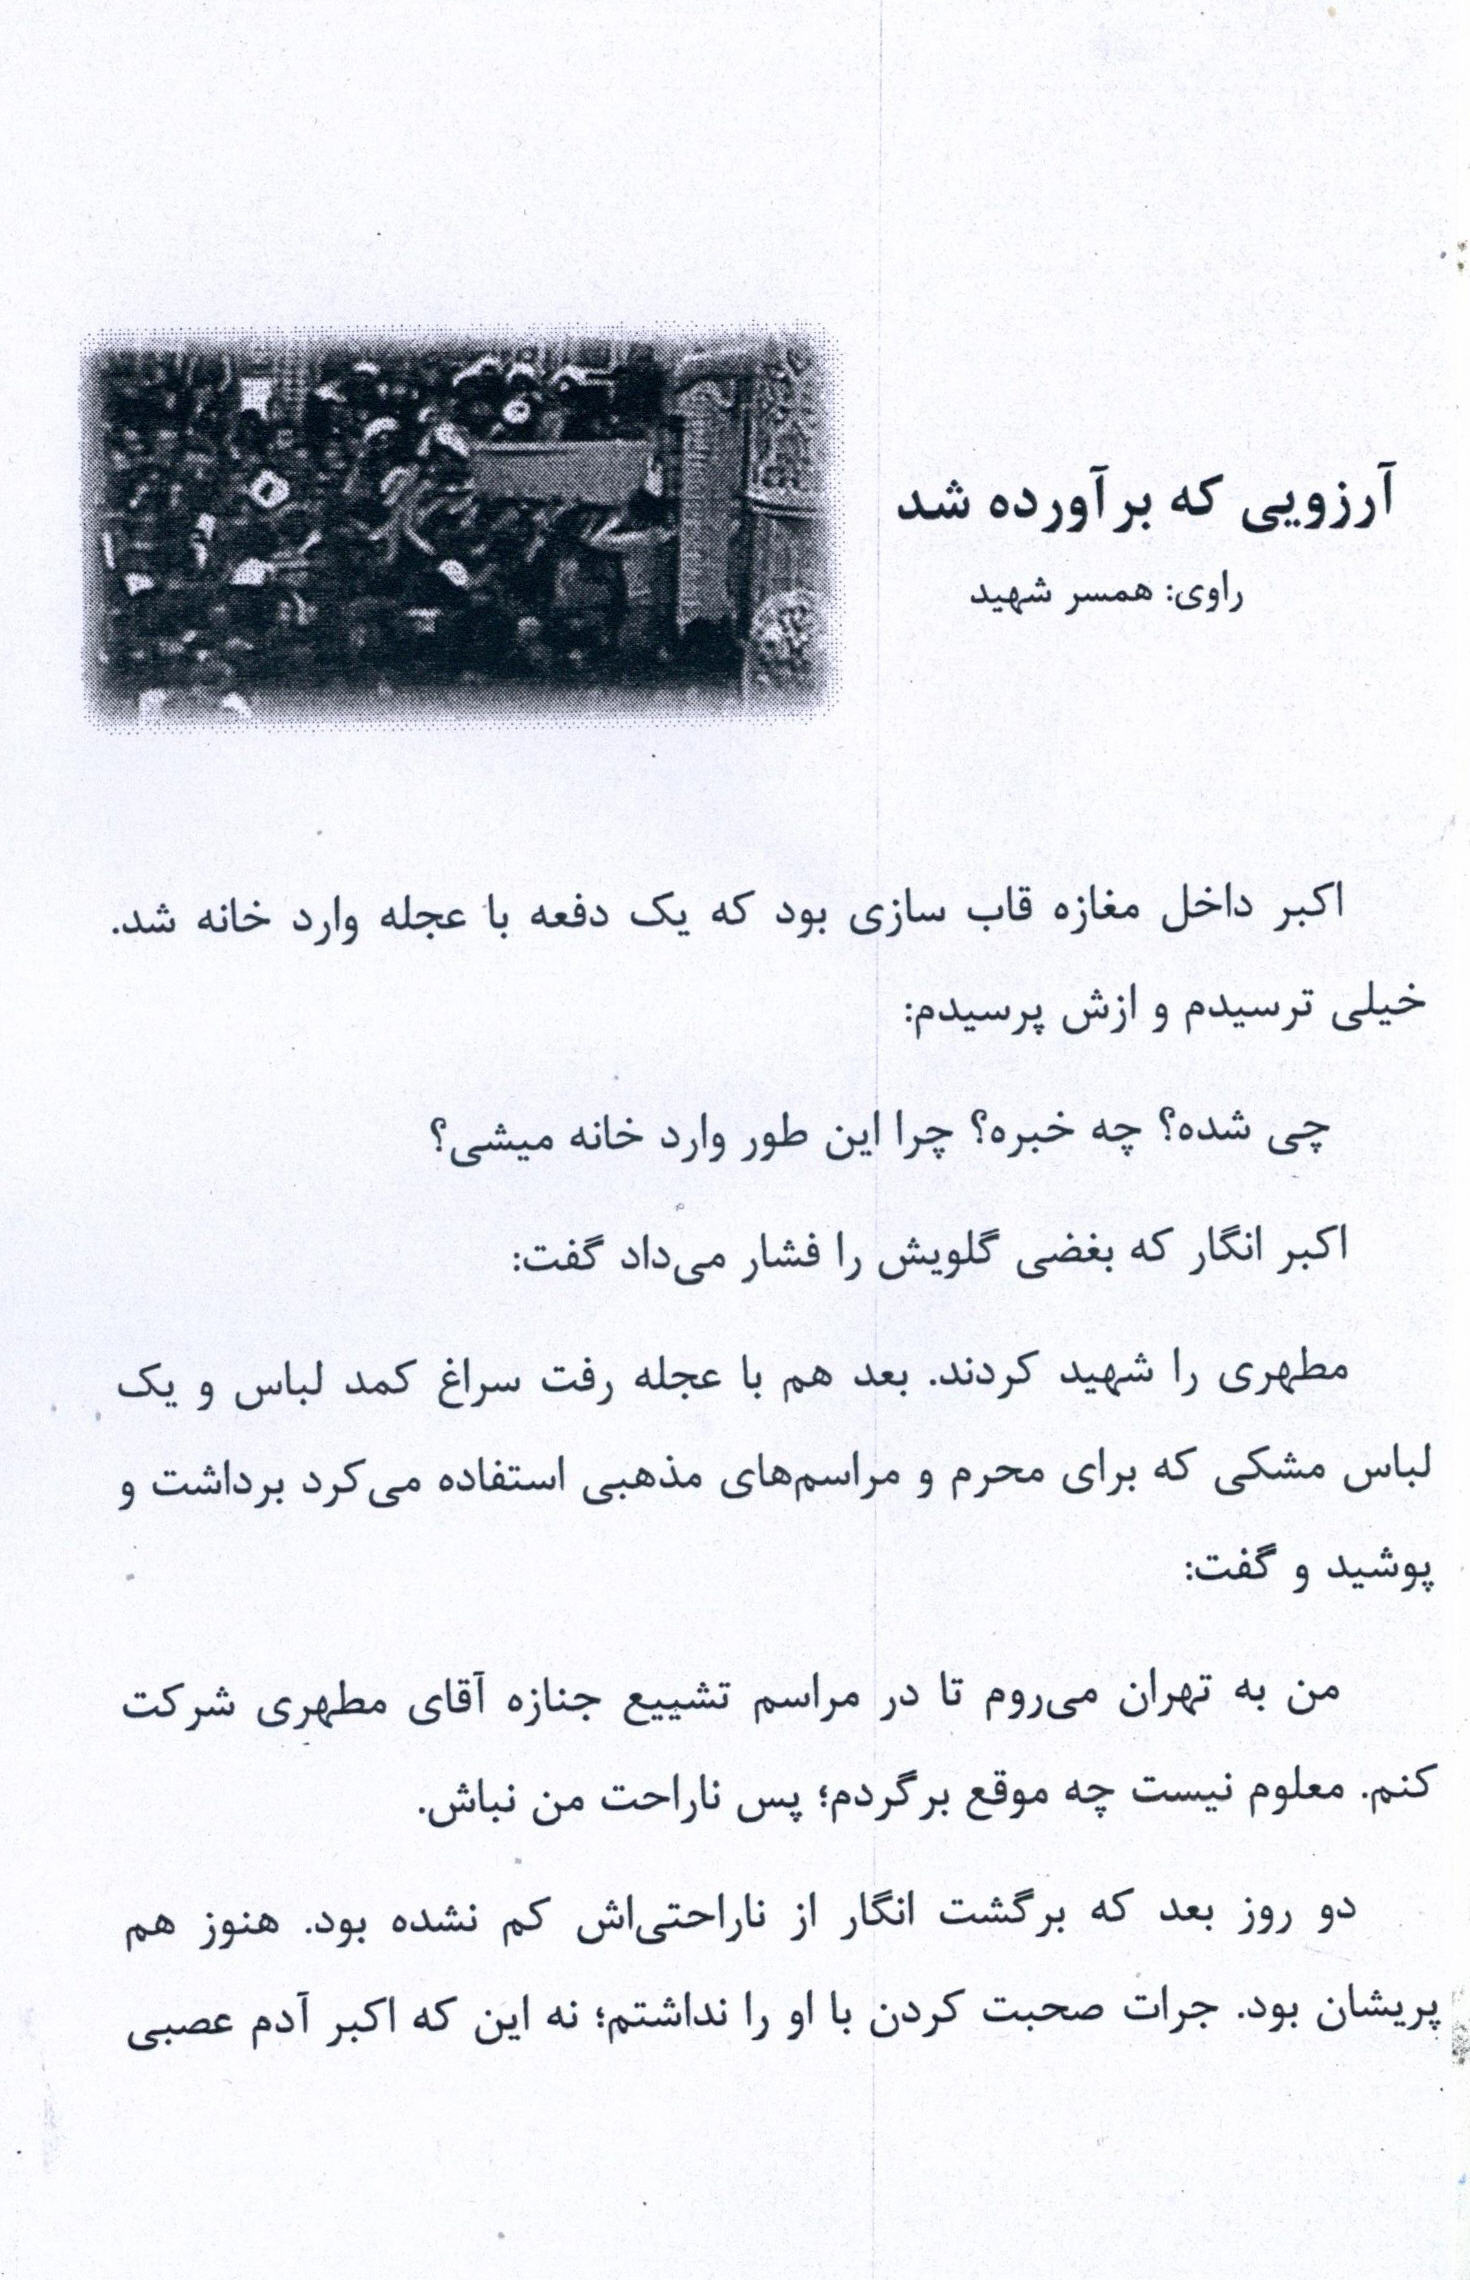 آرزویی که برآورده شد
راوی: همسر شهید
اکبر داخل مغازه قاب سازی بود که یک دفعه با عجله وارد خانه شد.
خیلی ترسیدم و ازش پرسیدم:
چی شده؟ چه خبره؟ چرا این طور وارد خانه میشی؟
اکبر انگار که بغضی گلویش را فشار می‌داد گفت:
مطهری را شهید کردند. بعد هم با عجله رفت سراغ کمد لباس و یک
لباس مشکی که برای محرم و مراسم‌های مذهبی استفاده می‌کرد برداشت و
پوشید و گفت:
من به تهران می‌روم تا در مراسم تشییع جنازه آقای مطهری شرکت
کنم. معلوم نیست چه موقع برگردم؛ پس ناراحت من نباش.
دو روز بعد که برگشت انگار از ناراحتی‌اش کم نشده بود. هنوز هم
پریشان بود. جرات صحبت کردن با او را نداشتم؛ نه این که اکبر آدم عصبی